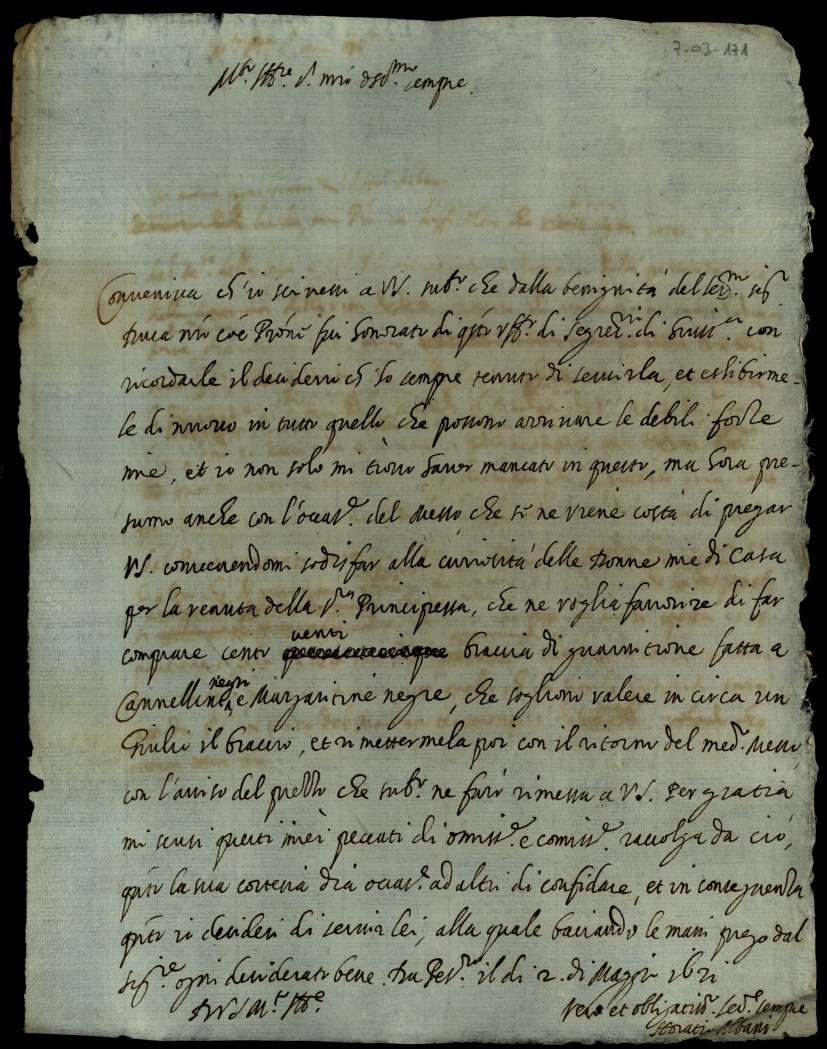 7-03-171
M.to Ill.re S.r mio oss.mo sempre
Conveniva ch'io scrivessi a VS. sub.o che dalla benignità del Ser.mo sig.r
Duca mio e Prone fui honorato di q.sto off.o di Segret.rio di con
ricordarle il desiderio ch'ho sempre tenuto di servirla, et eshibirme-
le di nuovo in tutto quello che possono arrivare le debili forze
mie, et io non solo mi trovo haver mancato in questo, ma hora pre-
sumo anche con l'occas.e del Messo che se ne viene costà di pregar
VS. convenendomi sodisfar alla curiosità delle Donne mie di Casa
per la venuta della S.ma Principessa, che ne voglia favorire di far
comprare cento venti braccia di guarnitione fatta a
Cannellini negri e Margaritine negre, che sogliono valere in circa un
Giulio il braccio, et rimettermela poi con il ritorno del med.o Messo,
con l'aviso del prezzo che sub.o ne farò rimessa a VS. Per gratia
mi scusi questi miei peccati di omiss.e e comiss.e raccolga da ciò,
q.nto la sua cortesia dia occas.e ad altri di confidare, et in conseguenza
q.nto io desideri di servir lei, alla quale baciando le mani prego dal
sig.re ogni desiderato bene. Da Pes.ro il di 2. di Maggio 1621
Di VS M.to Ill.re
Vero et obligatiss.o ser.re sempre
Horatio Albani